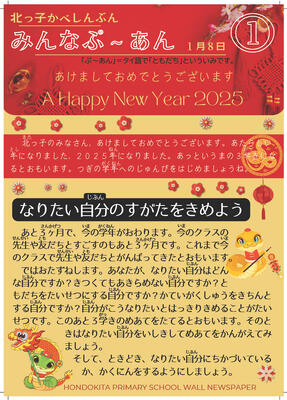 北っ子かべしんぶん
みんなぷ~あん 1月8日 ①
「ぷ〜あん」=タイ語で「ともだち」といういみです。
あけましておめでとうございます
A Happy New Year 2025
北っ子のみなさん、あけましておめでとうございます。あたらしい
年になりました。2025年になりました。あっというまの3学きにな
るとおもいます。つぎの学年へのじゅんびをはじめましょうね。
なりたい自分のすがたをきめよう
あと3ヶ月で、今の学年がおわります。今のクラスの
先生や友だちとすごすのもあと3ヶ月です。これまで今
のクラスで先生や友だちとがんばってきたとおもいます。
ではおたずねします。あなたが、なりたい自分はどん
な自分ですか?きつくてもあきらめない自分ですか?と
もだちをたいせつにする自分ですか?かていがくしゅうをきちんと
する自分ですか?自分がこうなりたいとはっきりきめることがたい
せつです。このあと3学きのめあてをたてるとおもいます。そのと
きはなりたい自分をいしきしてめあてをかんがえてみ
ましょう。
そして、ときどき、なりたい自分にちかづいている
か、かくにんをするようにしましょう。
HONDOKITA PRIMARY SCHOOL WALL NEWSPAPER